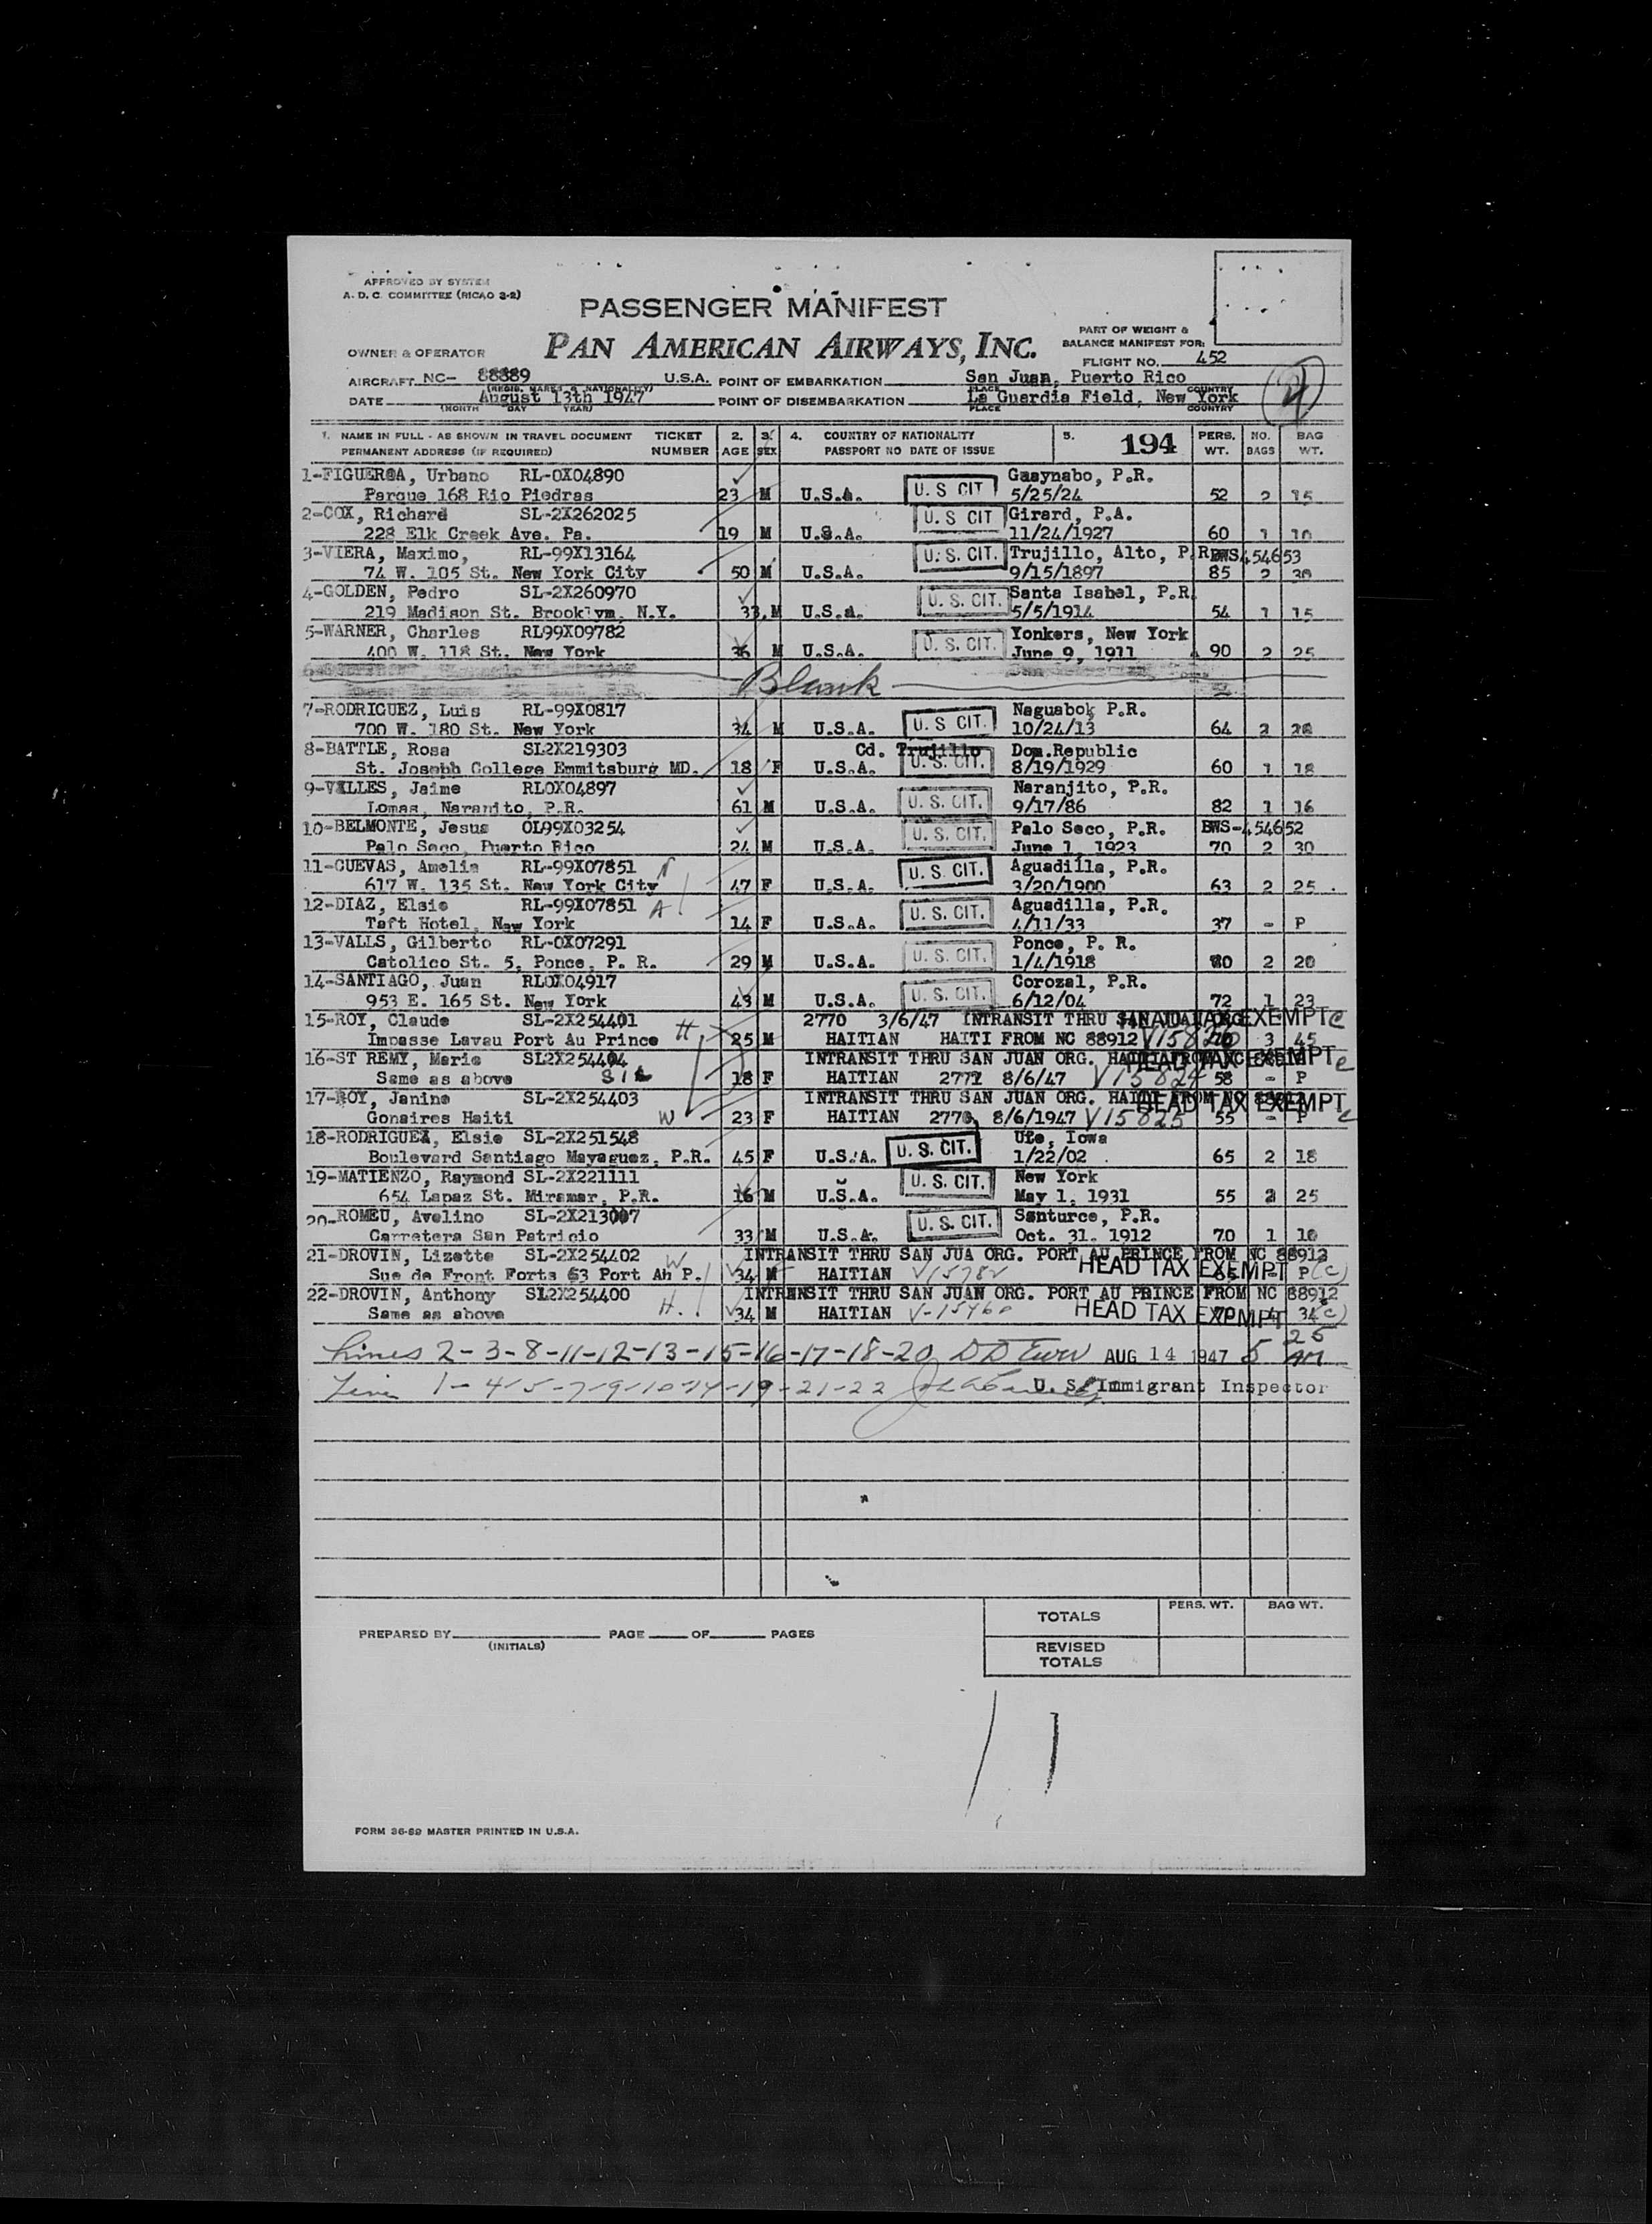 APPROVED BY SYSTEM
A. D. C. COMMITTEE (RICAO 3-2)
PASSENGER MANIFEST
PART OF WEIGHT &
BALANCE MANIFEST FOR:
OWNER & OPERATOR PAN AMERICAN AIRWAYS, INC.
FLIGHT NO. 452
AIRCRAFT NC- 88889 U.S.A. POINT OF EMBARKATION San Juan, Puerto Rico
(REGIS. MARKS & NATIONALITY) PLACE COUNTRY
DATE August 13th 1947 POINT OF DISEMBARKATION La Guardia Field, New York
(MONTH DAY YEAR) PLACE COUNTRY
1. NAME IN FULL - AS SHOWN IN TRAVEL DOCUMENT TICKET 2. 3. 4. COUNTRY OF NATIONALITY 5. 194 PERS. NO. BAG
PERMANENT ADDRESS (IF REQUIRED) NUMBER AGE SEX PASSPORT NO DATE OF ISSUE WT. BAGS WT.
1-FIGUEROA, Urbano RL-0X04890 Gaaynabo, P.R.
Parque 168 Rio Piedras 23 M U.S.A. U. S CIT 5/25/24 52 2 15
2-COX, Richard SL-2X262025 U. S CIT Girard, P.A.
228 Elk Creek Ave. Pa. 19 M U.S.A. 11/24/1927 60 1 10
3-VIERA, Maximo, RL-99X13164 U. S. CIT. Trujillo, Alto, P.R. BWS454653
74 W. 105 St. New York City 50 M U.S.A. 9/15/1897 85 2 30
4-GOLDEN, Pedro SL-2X260970 U. S. CIT. Santa Isabel, P.R.
219 Madison St. Brooklyn, N.Y. 33 M U.S.A. 5/5/1914 54 1 15
5-WARNER, Charles RL99X09782 U. S. CIT. Yonkers, New York
400 W. 118 St. New York 36 M U.S.A. June 9, 1911 90 2 25
Blank
7-RODRIGUEZ, Luis RL-99X0817 U. S CIT. Naguabo, P.R.
700 W. 180 St. New York 34 M U.S.A. 10/24/13 64 2 20
8-BATTLE, Rosa SL2X219303 Cd. Trujillo Dom.Republic
St. Joseph College Emmitsburg MD. 18 F U.S.A. U. S. CIT. 8/19/1929 60 1 18
9-VALLES, Jaime RL0X04897 Naranjito, P.R.
Lomas, Naranjto, P.R. 61 M U.S.A. U. S. CIT. 9/17/86 82 1 16
10-BELMONTE, Jesus OL99X03254 U. S. CIT. Palo Seco, P.R. BWS-454652
Palo Seco, Puerto Rico 24 M U.S.A. June 1, 1923 70 2 30
11-CUEVAS, Amelia RL-99X07851 U. S. CIT. Aguadilla, P.R.
617 W. 135 St. New York City 47 F U.S.A. 3/20/1900 63 2 25
12-DIAZ, Elsie RL-99X07851 A U. S. CIT. Aguadilla, P.R.
Taft Hotel, New York 14 F U.S.A. 4/11/33 37 - P
13-VALLS, Gilberto RL-0X07291 U. S. CIT. Ponce, P. R.
Catolico St. 5, Ponce, P. R. 29 M U.S.A. 1/4/1918 80 2 20
14-SANTIAGO, Juan RL0X04917 U. S. CIT. Corozal, P.R.
953 E. 165 St. New York 43 M U.S.A. 6/12/04 72 1 23
15-ROY, Claude SL-2X254401 H 2770 3/6/47 INTRANSIT THRU SAN JUAN ORG. HEAD TAX EXEMPT c
Impasse Lavau Port Au Prince 25 M HAITIAN HAITI FROM NC 88912 3 45
16-ST REMY, Marie SL2X254404 INTRANSIT THRU SAN JUAN ORG. HAITI FROM NC HEAD TAX EXEMPT c
Same as above Sil 18 F HAITIAN 2772 8/6/47 V15824 58 - P
17-ROY, Janine SL-2X254403 INTRANSIT THRU SAN JUAN ORG. HAITI FROM NC HEAD TAX EXEMPT c
Gonaires Haiti W 23 F HAITIAN 8/6/1947 V15825 55 - P
18-RODRIGUEZ, Elsie SL-2X251548 U. S. CIT. Ute, Iowa
Boulevard Santiago Mayaguez, P.R. 45 F U.S.A. 1/22/02 65 2 18
19-MATIENZO, Raymond SL-2X221111 U. S. CIT. New York
654 Lapaz St. Miramar, P.R. 16 M U.S.A. May 1, 1931 55 2 25
20-ROMEU, Avelino SL-2X213007 U. S. CIT. Santurce, P.R.
Carretera San Patricio 33 M U.S.A. Oct. 31, 1912 70 1 10
21-DROVIN, Lizette SL-2X254402 W INTRANSIT THRU SAN JUA ORG. PORT AU PRINCE FROM NC 88912
Sue de Front Forts 63 Port Ah P. 34 M HAITIAN V15782 HEAD TAX EXEMPT P (c)
22-DROVIN, Anthony SL2X254400 INTRANSIT THRU SAN JUAN ORG. PORT AU PRINCE FROM NC 88912
Same as above H. 34 M HAITIAN HEAD TAX EXEMPT 34 (c)
Lines 2-3-8-11-12-13-15-16-17-18-20 AUG 14 1947 5 25 AM
Line 1-4-5-7-9-10-14-19-21-22 U. S. Immigrant Inspector
TOTALS PERS. WT. BAG WT.
PREPARED BY PAGE OF PAGES
(INITIALS)
REVISED
TOTALS
FORM 36-89 MASTER PRINTED IN U.S.A.